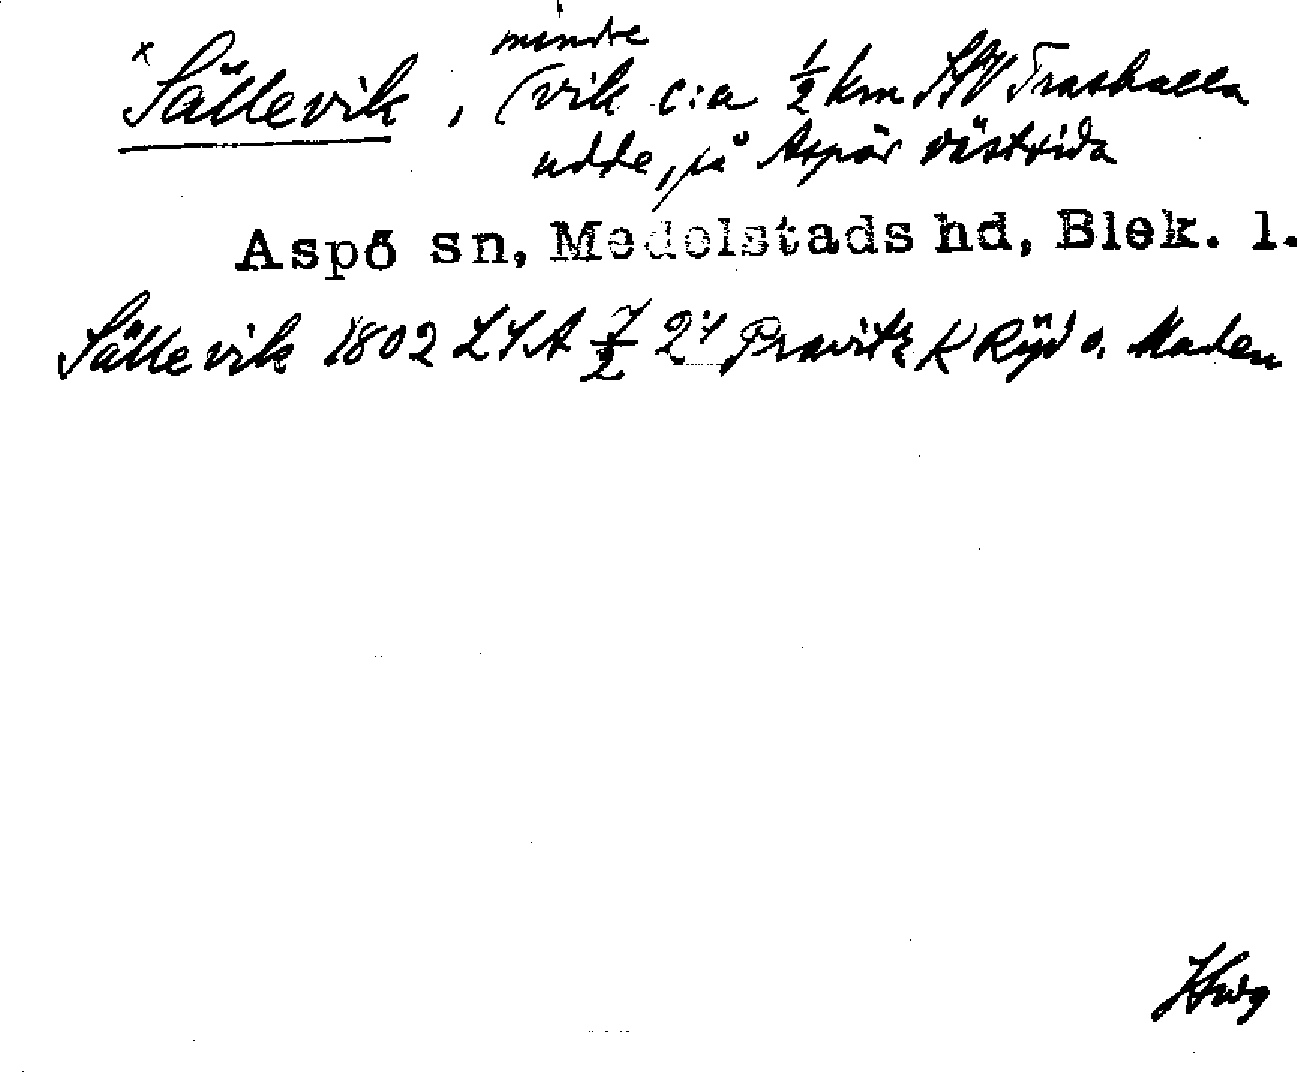 × Sällevik, mindre vik c:a ½ km SV Traskalla
udde, på Aspös västsida
Aspö sn, Medelstads hd, Blek. l.
Sällevik 1802 LSA 7/2 Pravitz K Ryd o. Maden